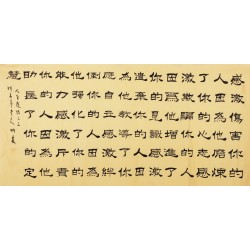 感激傷害你的
人因為他磨煉
了你的心志感
激欺騙你的人
因為他增進了
你的見識感激
遺棄你的人因
為他教導了你
應自立感激絆
倒你的人因為
他強化了你的
能力感激斥責
你的人因為他
助長了你的定
慧